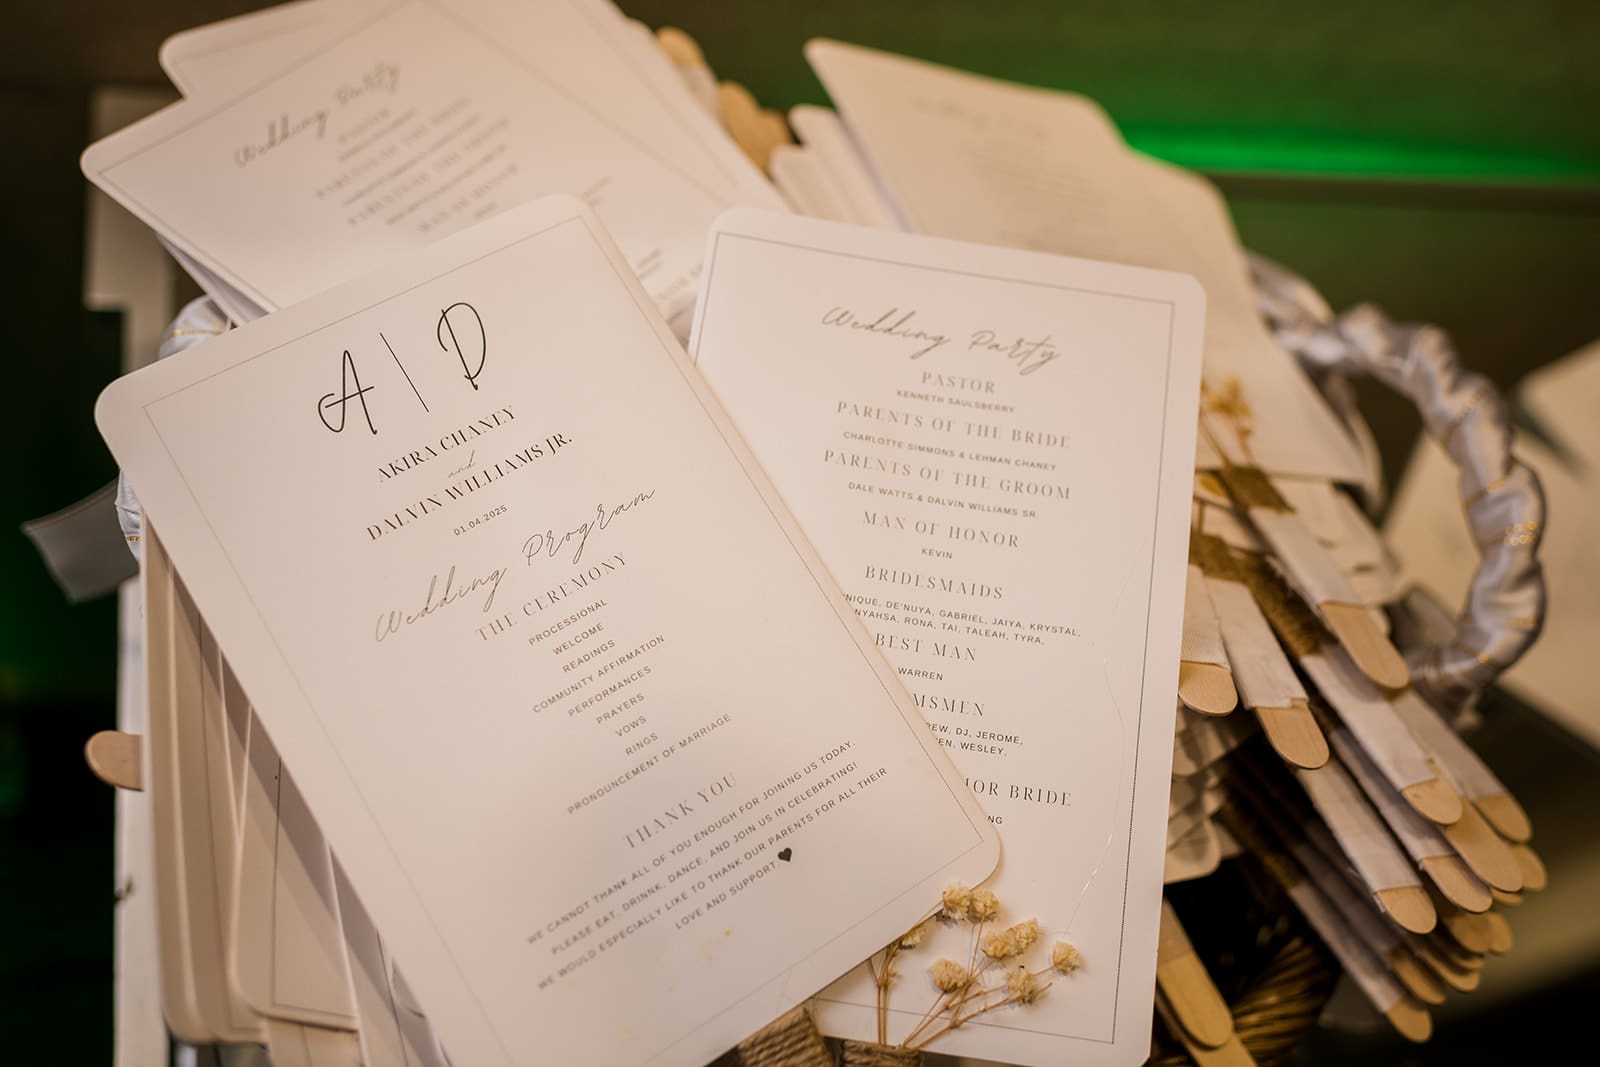 A | D
AKIRA CHANEY
and
DALVIN WILLIAMS JR.
01.04.2025
Wedding Program
THE CEREMONY
PROCESSIONAL
WELCOME
READINGS
COMMUNITY AFFIRMATION
PERFORMANCES
PRAYERS
VOWS
RINGS
PRONOUNCEMENT OF MARRIAGE
THANK YOU
WE CANNOT THANK ALL OF YOU ENOUGH FOR JOINING US TODAY.
PLEASE EAT, DRINNK, DANCE, AND JOIN US IN CELEBRATING!
WE WOULD ESPECIALLY LIKE TO THANK OUR PARENTS FOR ALL THEIR
LOVE AND SUPPORT ♥
Wedding Party
PASTOR
KENNETH SAULSBERRY
PARENTS OF THE BRIDE
CHARLOTTE SIMMONS & LEHMAN CHANEY
PARENTS OF THE GROOM
DALE WATTS & DALVIN WILLIAMS SR.
MAN OF HONOR
KEVIN
BRIDLSMAIDS
NIQUE, DE'NUYA, GABRIEL, JAIYA, KRYSTAL,
NYAHSA, RONA, TAI, TALEAH, TYRA,
BEST MAN
WARREN
MSMEN
REW, DJ, JEROME,
EN, WESLEY,
IOR BRIDE
NG
Wedding Party
PASTOR
PARENTS OF THE BRIDE
PARENTS OF THE GROOM
MAN OF HONOR